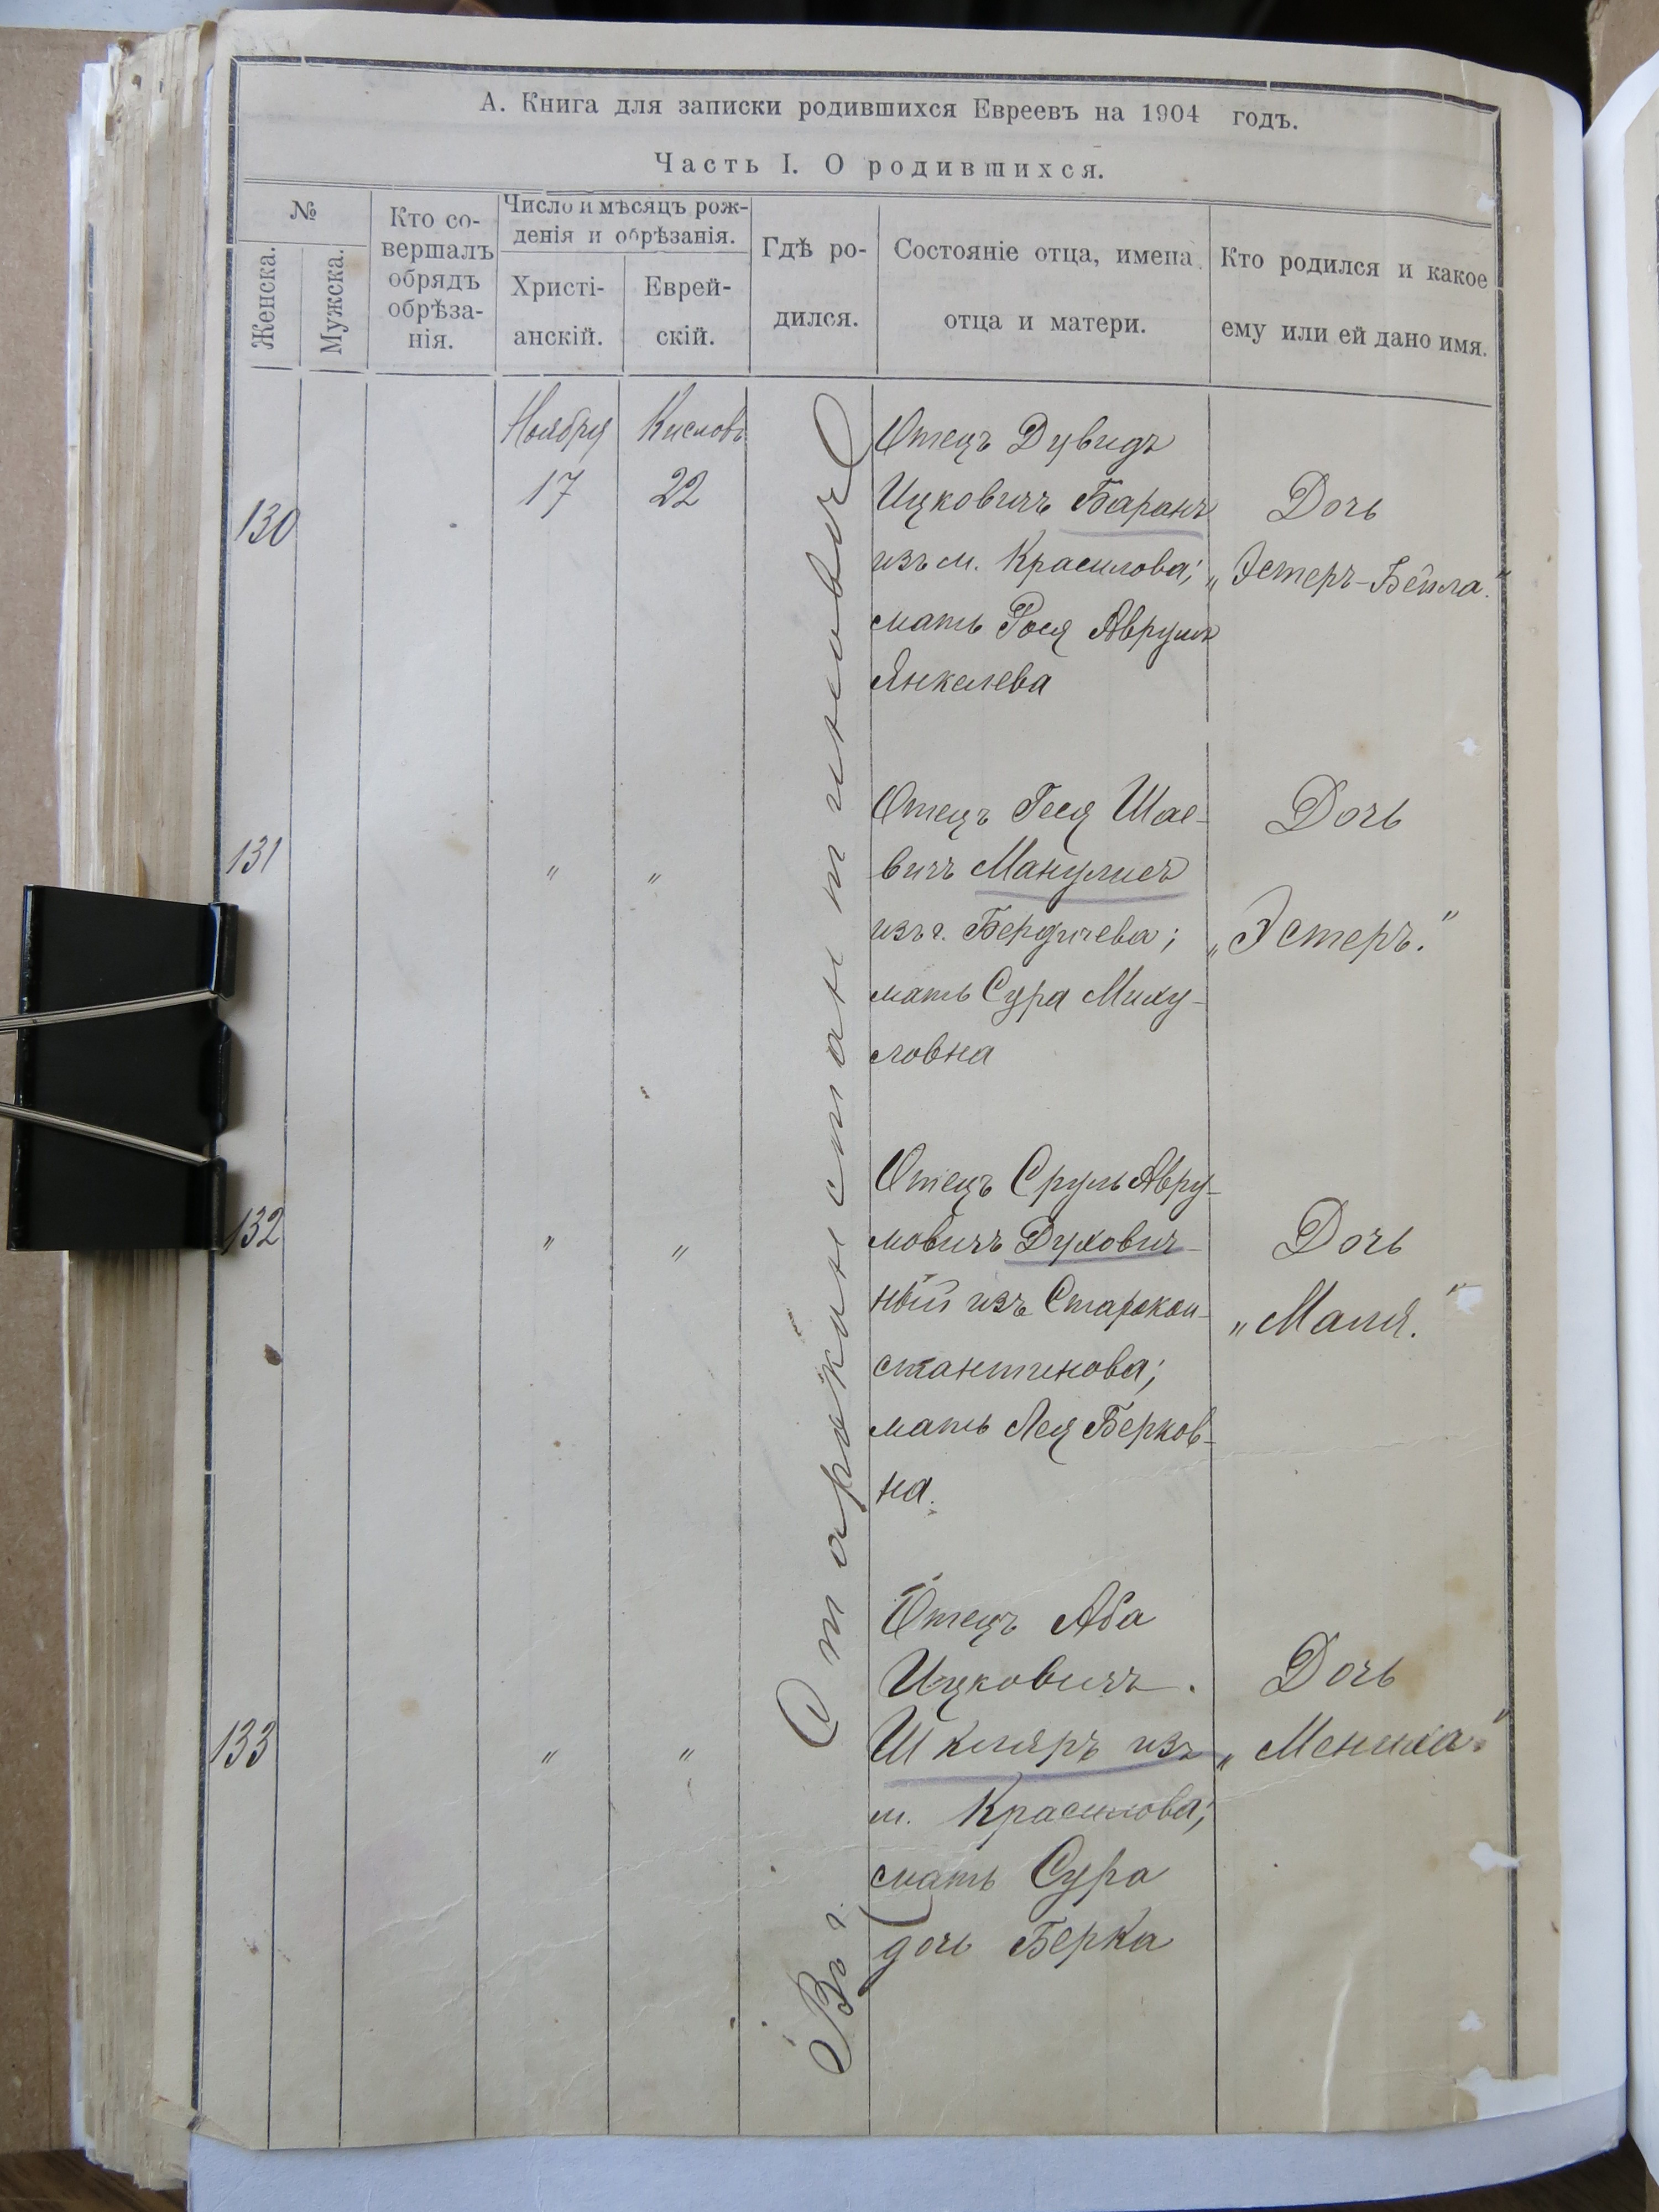 А. Книга для записки родившихся Евреевъ на 1904 годъ.
Часть I. О родившихся.
№
Женска.
Мужска.
Кто со-
вершалъ
обрядъ
обрѣза-
нія.
Число и мѣсяцъ рож-
денія и обрѣзанія.
Христі-
анскій.
Еврей-
скій.
Гдѣ ро-
дился.
Состояніе отца, имена
отца и матери.
Кто родился и какое
ему или ей дано имя.
Въ г. Староконстантиновѣ
130
Ноября
17
Кислова
22
Отецъ Дувидъ
Ицковичъ Баранъ
изъ м. Красилова;
мать Рося Аврумъ
Янкелева
Дочь
„Эстеръ-Бейла."
131
"
"
Отецъ Геся Шае-
вичъ Манулисъ
изъ г. Бердичева;
мать Сура Миху-
ловна
Дочь
„Эстеръ."
132
"
"
Отецъ Сруль Авру-
мовичъ Духович-
ный изъ Старокон-
стантинова;
мать Лея Берков-
на.
Дочь
„Маля."
133
"
"
Отецъ Аба
Ицковичъ
Шкляръ изъ
м. Красилова;
мать Сура
дочь Берка
Дочь
„Мениха."